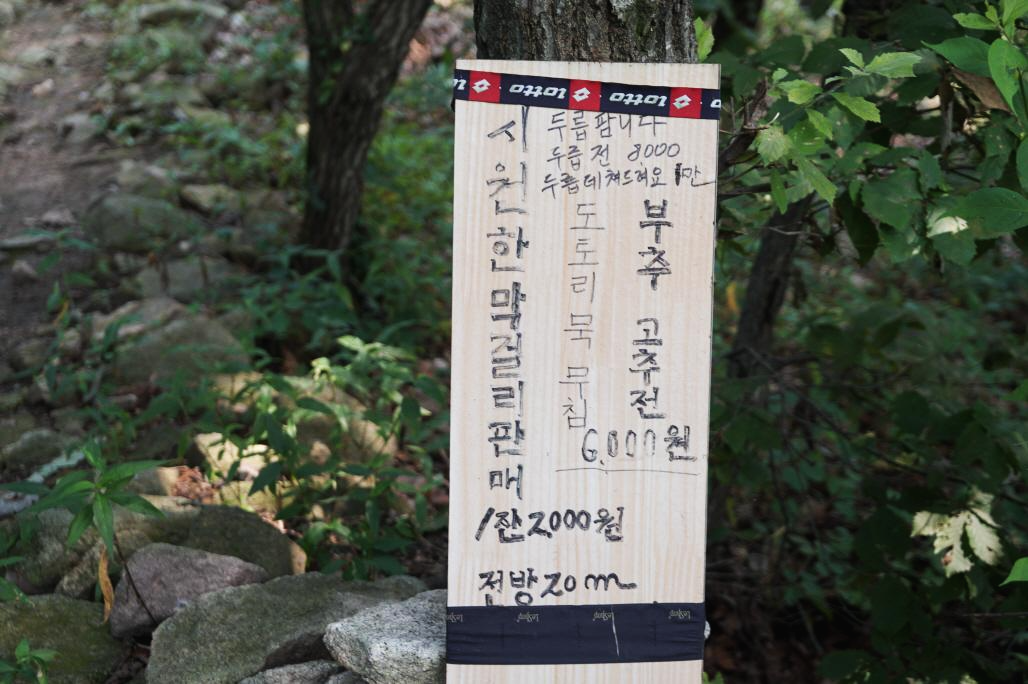 lotto lotto
두릅팝니다
두릅전 8,000
두릅데쳐드려요 1만
시원한막걸리판매
도토리묵 무침
부추 고추전
6,000원
1잔 2,000원
전방 20m